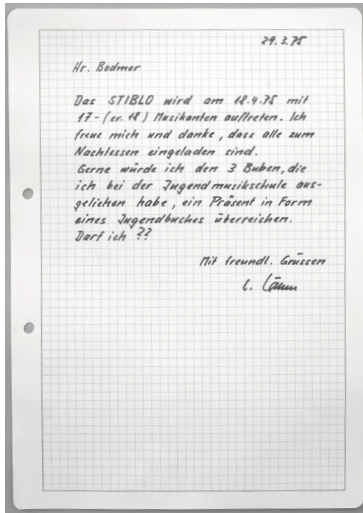 29.3.75
Hr. Bodmer
Das STIBLO wird am 18.4.75 mit
17-(ev. 18) Musikanten auftreten. Ich
freue mich und danke, dass alle zum
Nachtessen eingeladen sind.
Gerne würde ich den 3 Buben, die
ich bei der Jugendmusikschule aus-
geliehen habe, ein Präsent in Form
eines Jugendbuches überreichen.
Darf ich ??
Mit freundl. Grüssen